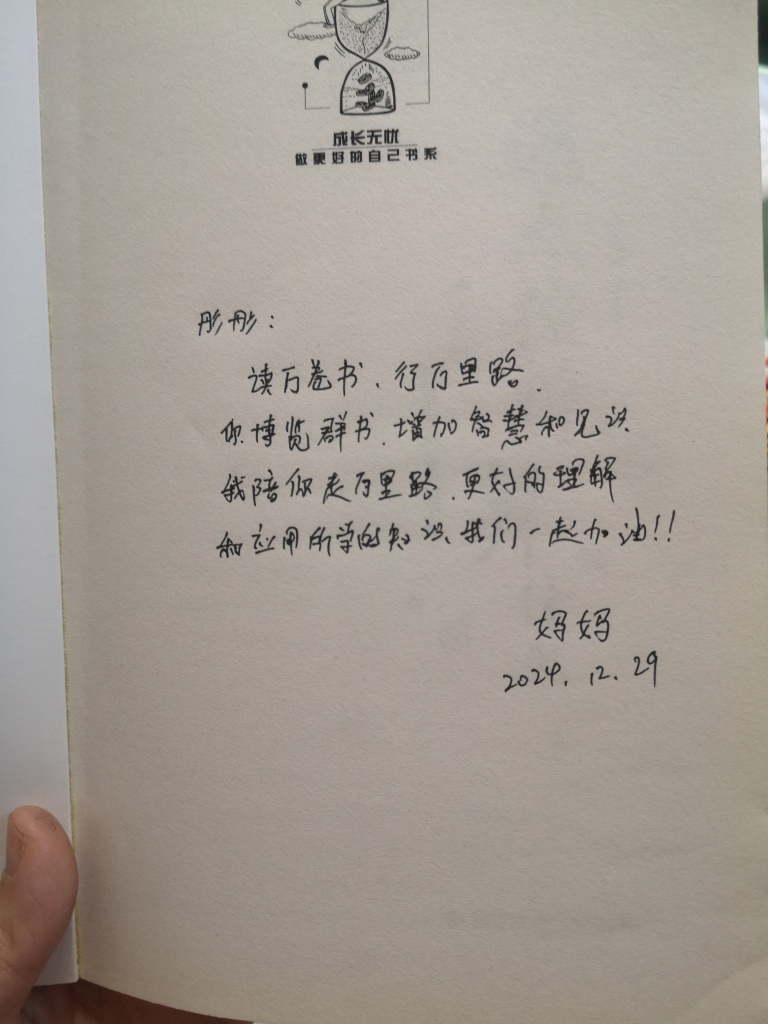 成长无忧
做更好的自己书系
彤彤：
读万卷书、行万里路.
你博览群书.增加智慧和见识
我陪你走万里路.更好的理解
和应用所学的知识、我们一起加油!!
妈妈
2024.12.29